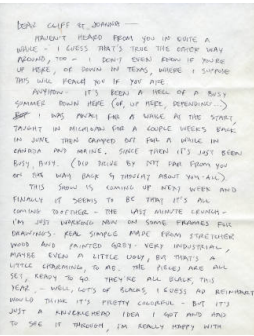 DEAR CLIFF & JOANNA —
HAVEN'T HEARD FROM YOU IN QUITE A
WHILE - I GUESS THAT'S TRUE THE OTHER WAY
AROUND, TOO - I DON'T EVEN KNOW IF YOU'RE
UP HERE, OR DOWN IN TEXAS, WHERE I SUPPOSE
THIS WILL REACH YOU IF YOU ARE
ANYHOW - IT'S BEEN A HELL OF A BUSY
SUMMER DOWN HERE (OR, UP HERE, DEPENDING...)
I WAS AWAY FOR A WHILE AT THE START,
TAUGHT IN MICHIGAN FOR A COUPLE WEEKS BACK
IN JUNE THEN CAMPED OUT FOR A WHILE IN
CANADA AND MAINE. SINCE THEN IT'S JUST BEEN
BUSY, BUSY. (DID DRIVE BY NOT FAR FROM YOU
ON THE WAY BACK & THOUGHT ABOUT YOU-ALL)
THIS SHOW IS COMING UP NEXT WEEK AND
FINALLY IT SEEMS TO BE THAT IT'S ALL
COMING TOGETHER - THE LAST MINUTE CRUNCH -
I'M JUST WORKING NOW ON SOME FRAMES FOR
DRAWINGS. REAL SIMPLE MADE FROM STRETCHER
WOOD AND PAINTED GREY - VERY INDUSTRIAL,
MAYBE EVEN A LITTLE UGLY, BUT THAT'S A
LITTLE CHARMING, TO ME. THE PIECES ARE ALL
SET, READY TO GO. THEY'RE ALL BLACK THIS
YEAR - WELL, LOTS OF BLACKS, I GUESS AD REINHARDT
WOULD THINK IT'S PRETTY COLORFUL - BUT IT'S
JUST A KNUCKLEHEAD IDEA I GOT AND HAD
TO SEE IT THROUGH, I'M REALLY HAPPY WITH